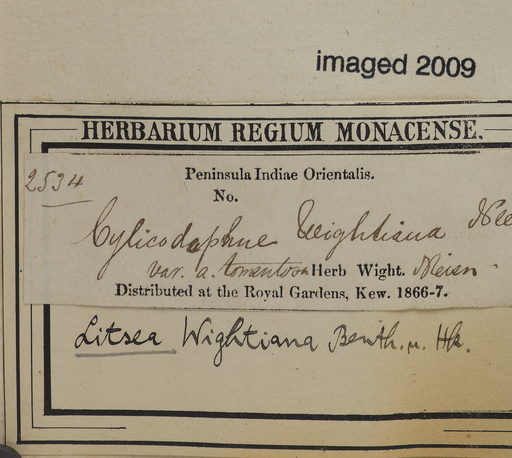 imaged 2009
HERBARIUM REGIUM MONACENSE.
2534
Peninsula Indiae Orientalis.
No.
Cylicodaphne Wightiana Nee
var. a. tomentosa Herb Wight. Meisn.
Distributed at the Royal Gardens, Kew. 1866-7.
Litsea Wightiana Benth. u. Hk.